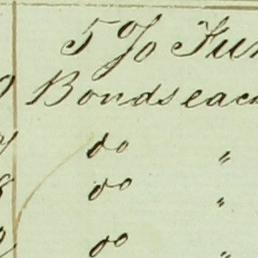 5 % Fun
Bonds each
do "
do "
do "